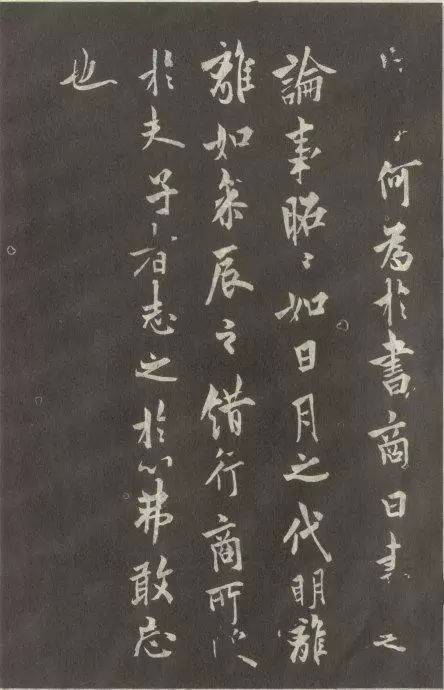 何為於書商曰書之
論事昭〻如日月之代明離
離如參辰之錯行商所受
於夫子者志之於心弗敢忘
也